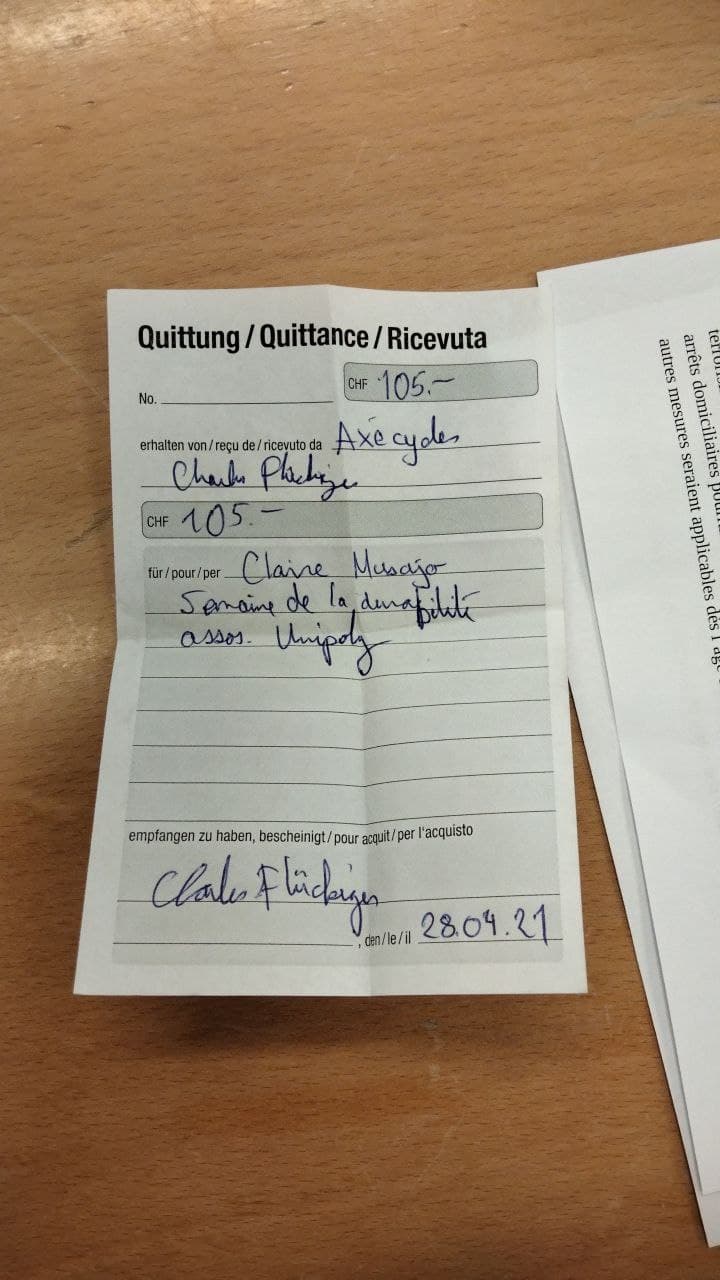 Quittung / Quittance / Ricevuta
No.
CHF 105.-
erhalten von / reçu de / ricevuto da Axecycles
Charles Flückiger
CHF 105.-
für / pour / per Claire Musajo
Semaine de la durabilité
assos. Unipoly
empfangen zu haben, bescheinigt / pour acquit / per l'acquisto
Charles Flückiger
, den / le / il 28.04.21
arrêts domiciliaires
autres mesures seraient applicables dès l'